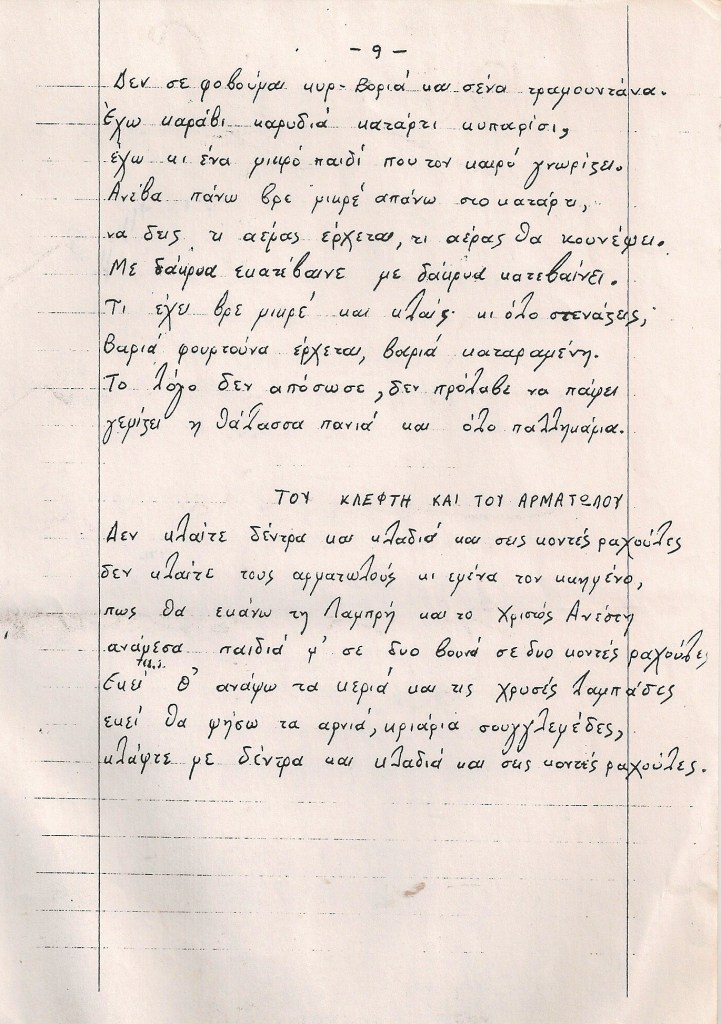 - 9 -
Δεν σε φοβούμαι κυρ-Βοριά και σένα τραμουντάνα.
Έχω καράβι καρυδιά κατάρτι κυπαρίσι,
έχω κι ένα μικρό παιδί που τον καιρό γνωρίζει.
Ανέβα πάνω βρε μικρέ απάνω στο κατάρτι,
να δεις τι αέρας έρχεται, τι αέρας θα κουνέψει.
Με δάκρυα εκατέβαινε με δάκρυα κατεβαίνει.
Τι έχει βρε μικρέ και κλαίς κι όλο στενάζεις,
Βαριά φουρτούνα έρχεται, βαριά καταραμένη.
Το λόγο δεν απόσωσε, δεν πρόλαβε να πάψει
γεμίζει η θάλασσα πανιά και όλο παλληκάρια.
ΤΟΥ ΚΛΕΦΤΗ ΚΑΙ ΤΟΥ ΑΡΜΑΤΩΛΟΥ
Δεν κλαίτε δέντρα και κλαδιά και σεις κοντές ραχούλες
δεν κλαίτε τους αρματωλούς κι εμένα τον καημένο,
πως θα εκάνω τη Λαμπρή και το Χριστός Ανέστη
ανάμεσα παιδιά μ' σε δυο βουνά σε δυο κοντές ραχούλες
Εκεί θ' ανάψω τα κεριά και τις χρυσές λαμπάδες
εκεί θα ψήσω τα αρνιά, κριάρια σουγγλεμέδες,
κλάψτε με δέντρα και κλαδιά και σεις κοντές ραχούλες.